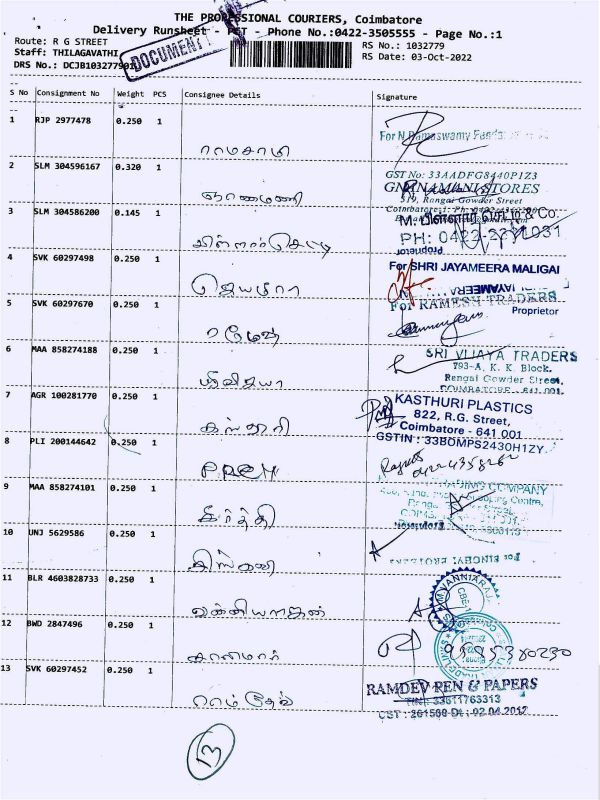 THE PROFESSIONAL COURIERS, Coimbatore
Delivery Runsheet - PST - Phone No.:0422-3505555 - Page No.:1
Route: R G STREET
RS No.: 1032779
Staff: THILAGAVATHI
DOCUMENT
RS Date: 03-Oct-2022
DRS No.: DCJB103277901
S No Consignment No Weight PCS Consignee Details Signature
1 RJP 2977478 0.250 1
ராமசாமி
For N.Ramaswamy
2 SLM 304596167 0.320 1
GST No: 33AADFG8440P1Z3
ஞானமணி
GNANAMANI STORES
519, Rangai Gowder Street
3 SLM 304586200 0.145 1
M. பிள்ளார் செட்டி & Co.
பிள்ளார்செட்டி
PH: 0423-2371031
Proprietor
4 SVK 60297498 0.250 1
For SHRI JAYAMEERA MALIGAI
ஜெயமீரா
JAYAMEERA
5 SVK 60297670 0.250 1
For RAMESH TRADERS
Proprietor
ரமேஷ்
6 MAA 858274188 0.250 1
SRI VIJAYA TRADERS
793-A, K. K. Block,
Rengai Gowder Street,
COIMBATORE - 641 001
ஸ்ரீவிஜயா
7 AGR 100281770 0.250 1
KASTHURI PLASTICS
822, R.G. Street,
Coimbatore - 641 001
கஸ்தூரி
GSTIN : 33BOMPS2430H1ZY
8 PLI 200144642 0.250 1
PREM
9 MAA 858274101 0.250 1
TRADING COMPANY
கீர்த்தி
10 UNJ 5629586 0.250 1
For SINGHVI BROTHERS
11 BLR 4603828733 0.250 1
M.VANNIARAJ
வன்னியராஜன்
12 BWD 2847496 0.250 1
9385380230
13 SVK 60297452 0.250 1
RAMDEV PEN & PAPERS
TIN: 33611763313
ராம்தேவ்
CST : 261568 Dt : 02.04.2012
13